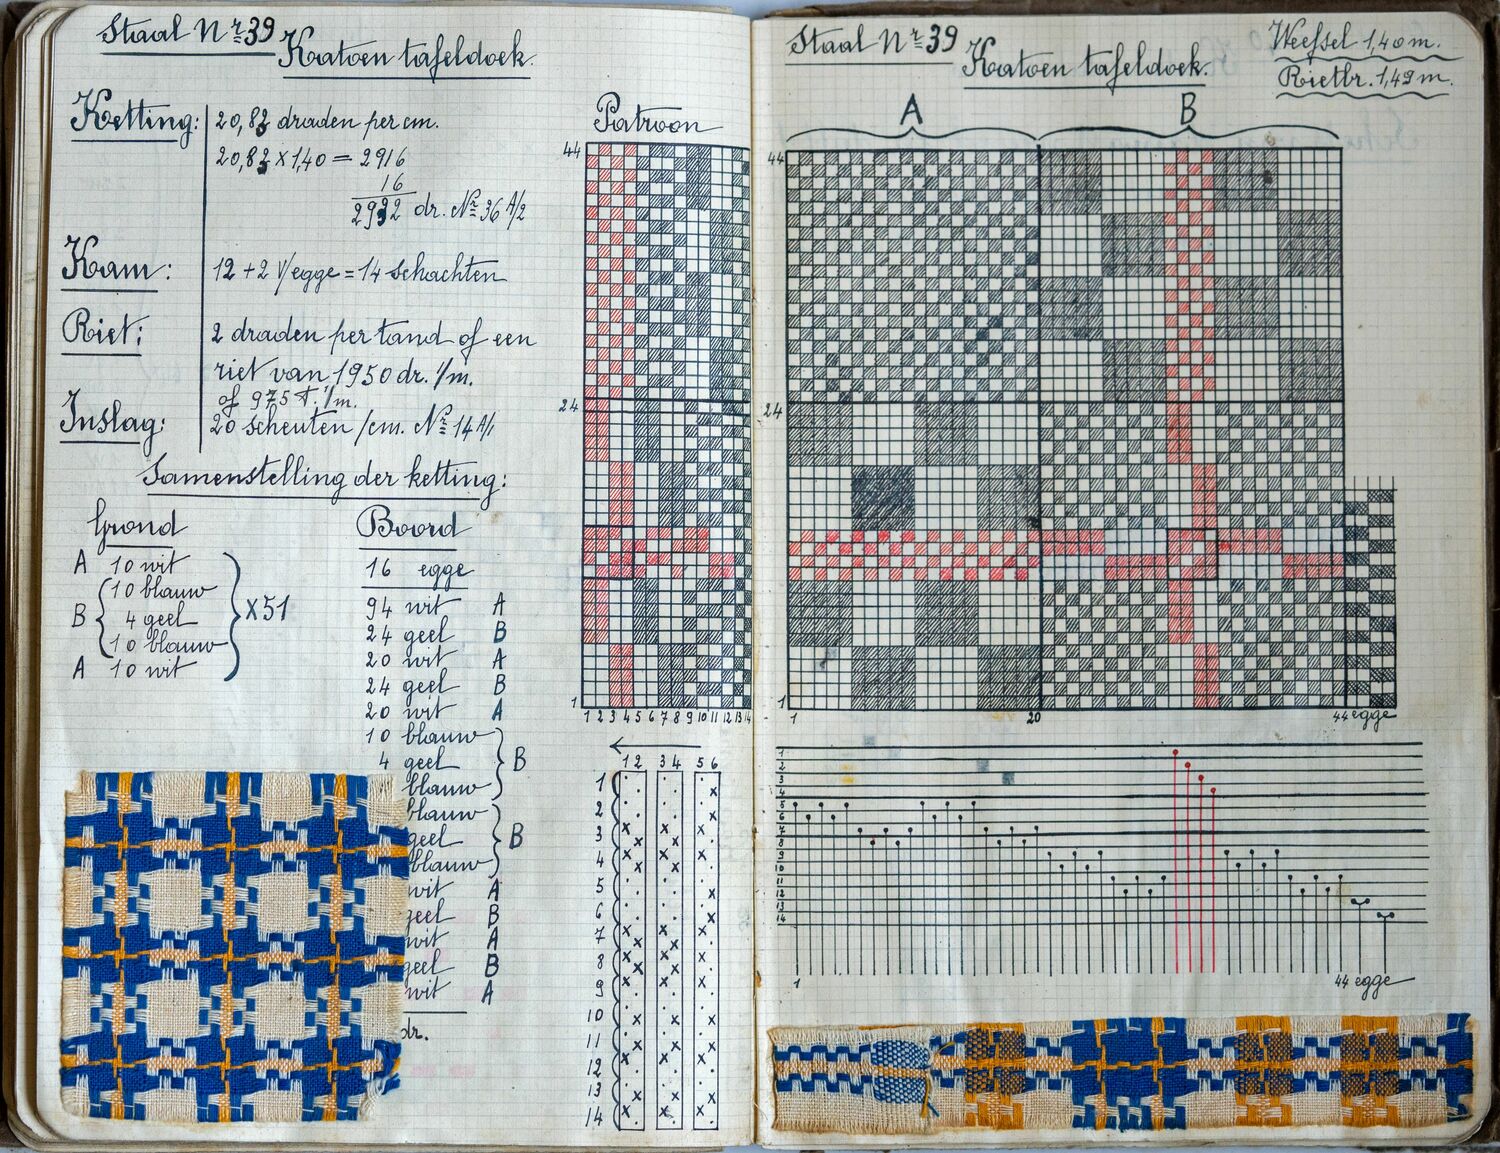 Staal Nr 39
Katoen tafeldoek.
Ketting:
20,83 draden per cm.
20,83 x 1,40 = 2916
16
2932 dr. Nr 36 A/2
Kam:
12 + 2 v/egge = 14 schachten
Riet:
2 draden per tand of een
riet van 1950 dr. 1/m.
of 975 t. 1/m.
Inslag:
20 scheuten /cm. Nr 14 A/1
Samenstelling der ketting:
Grond
A 10 wit
10 blauw
B 4 geel
10 blauw
A 10 wit
x51
Boord
16 egge
94 wit A
24 geel B
20 wit A
24 geel B
20 wit A
10 blauw
4 geel B
blauw
blauw
geel B
blauw
wit A
geel B
wit A
geel B
wit A
dr.
Patroon
44
24
1
1 2 3 4 5 6 7 8 9 10 11 12 13 14
1 2 3 4 5 6
1
2
3
4
5
6
7
8
9
10
11
12
13
14
Staal Nr 39
Katoen tafeldoek.
Weefsel 1,40 m.
Rietbr. 1,49 m.
A B
44
24
1
1 20 44 egge
1
2
3
4
5
6
7
8
9
10
11
12
13
14
1 44 egge